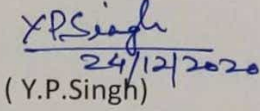 Y.P.Singh
24/12/2020
( Y.P.Singh)